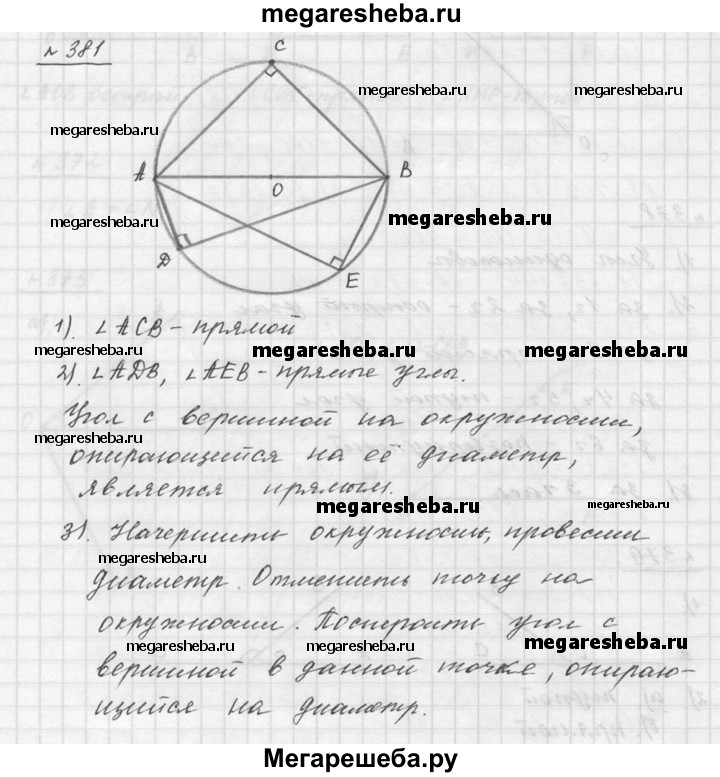 megaresheba.ru
№ 381
C
megaresheba.ru
megaresheba.ru
megaresheba.ru
A
B
O
megaresheba.ru
megaresheba.ru
D
E
1). ∠ACB – прямой
megaresheba.ru megaresheba.ru megaresheba.ru
2). ∠ADB, ∠AEB – прямые углы.
Угол с вершиной на окружности,
megaresheba.ru
опирающийся на её диаметр,
является прямым.
megaresheba.ru megaresheba.ru
3). Начертить окружность, провести
megaresheba.ru megaresheba.ru
диаметр. Отметить точку на
megaresheba.ru
окружности. Построить угол с
megaresheba.ru megaresheba.ru
вершиной в данной точке, опираю-
щийся на диаметр.
megaresheba.ru
Мегарешеба.ру